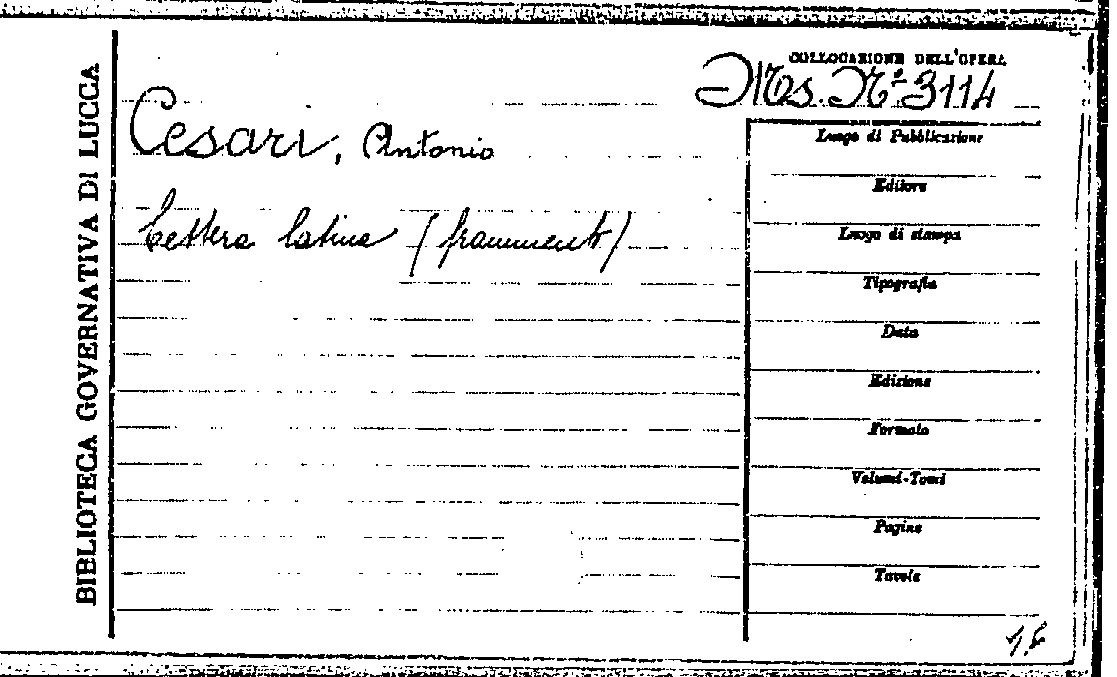 BIBLIOTECA GOVERNATIVA DI LUCCA
COLLOCAZIONE DELL'OPERA
Ms. N.º 3114
Cesari, Antonio
Lettera latina (frammento)
Luogo di Pubblicazione
Editore
Luogo di stampa
Tipografia
Data
Edizione
Formato
Volumi-Tomi
Pagine
Tavole